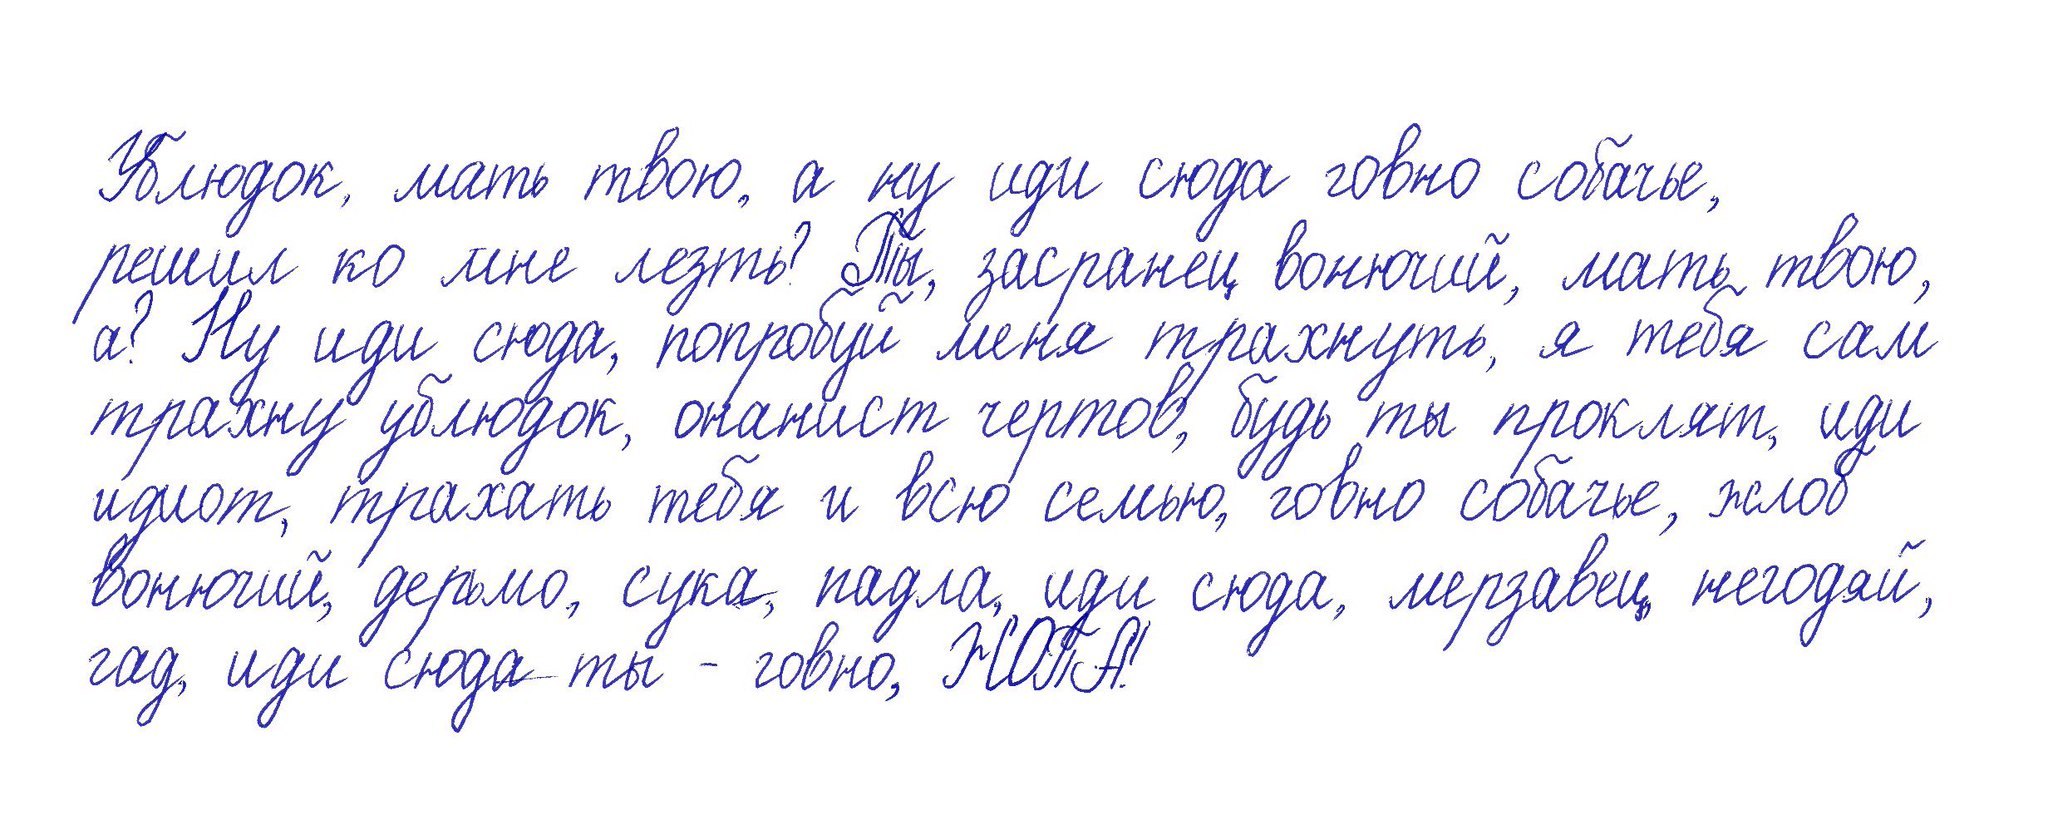 Ублюдок, мать твою, а ну иди сюда говно собачье,
решил ко мне лезть? Ты, засранец вонючий, мать твою,
а? Ну иди сюда, попробуй меня трахнуть, я тебя сам
трахну ублюдок, онанист чертов, будь ты проклят, иди
идиот, трахать тебя и всю семью, говно собачье, жлоб
вонючий, дерьмо, сука, падла, иди сюда, мерзавец, негодяй,
гад, иди сюда ты - говно, ЖОПА!